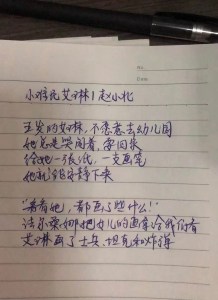 小难民艾琳 | 赵小北
五岁的艾琳,不愿意去幼儿园
她总是哭闹着,要回家
给她一张纸,一支画笔
她就能安静下来
"看看她,都画了些什么!"
法尔桑娜把女儿的画拿给我们看
艾琳画了士兵、坦克和炸弹